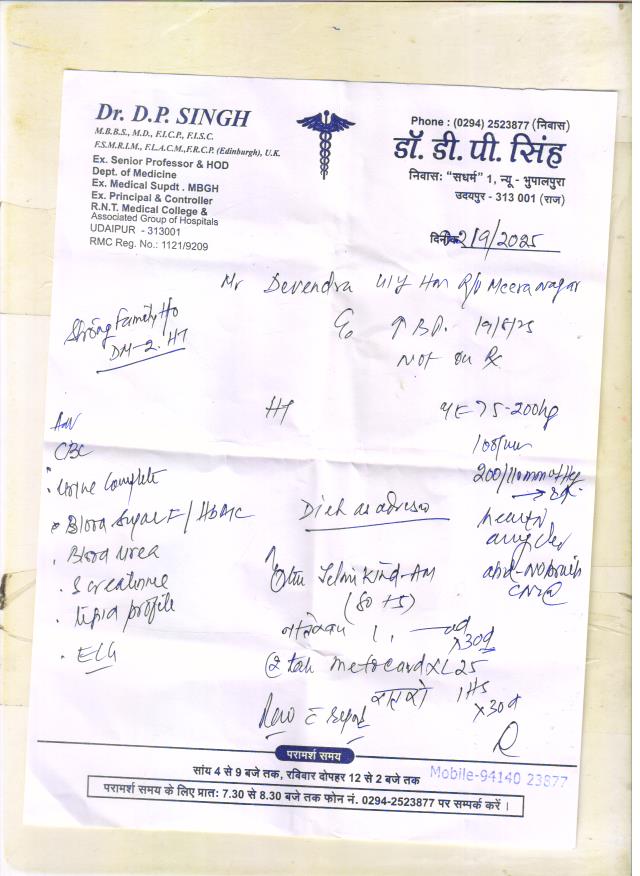 Dr. D.P. SINGH
M.B.B.S., M.D., F.I.C.P., F.I.S.C.
F.S.M.R.I.M., F.I.A.C.M., F.R.C.P. (Edinburgh), U.K.
Ex. Senior Professor & HOD
Dept. of Medicine
Ex. Medical Supdt. MBGH
Ex. Principal & Controller
R.N.T. Medical College &
Associated Group of Hospitals
UDAIPUR - 313001
RMC Reg. No.: 1121/9209
Phone : (0294) 2523877 (निवास)
डॉ. डी. पी. सिंह
निवास: "सधर्म" 1, न्यू - भुपालपुरा
उदयपुर - 313 001 (राज)
दिनांक 2/9/2025
Mr Devendra 41Y R/o Meera nagar
Strong Family H/o
DM-2. HT
C/o ↑ BP. 19/8/25
Not on Rx
HT
75-200
100/
200/110 mm of Hg
Adv
CBC
Urine Complete
Blood Sugar F / HbA1c
Blood Urea
S creatinine
Lipid profile
ECG
Diet as advised
Telmikind-AM
(80 + 5)
1
x 30d
② tab Metocard XL 25
1 HS
x 30d
Rev c report
परामर्श समय
सांय 4 से 9 बजे तक, रविवार दोपहर 12 से 2 बजे तक
Mobile-94140 23877
परामर्श समय के लिए प्रात: 7.30 से 8.30 बजे तक फोन नं. 0294-2523877 पर सम्पर्क करें ।